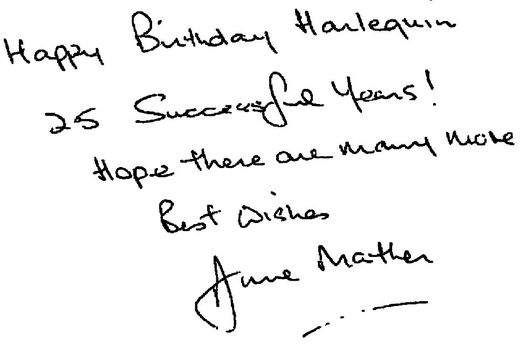 Happy Birthday Harlequin
25 Successful Years!
Hope there are many more
Best Wishes
Anne Mather